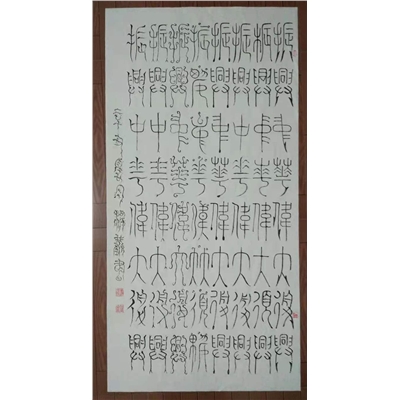 振興中華偉大復興
振興中華偉大復興
振興中華偉大復興
振興中華偉大復興
振興中華偉大復興
振興中華偉大復興
振興中華偉大復興
振興中華偉大復興